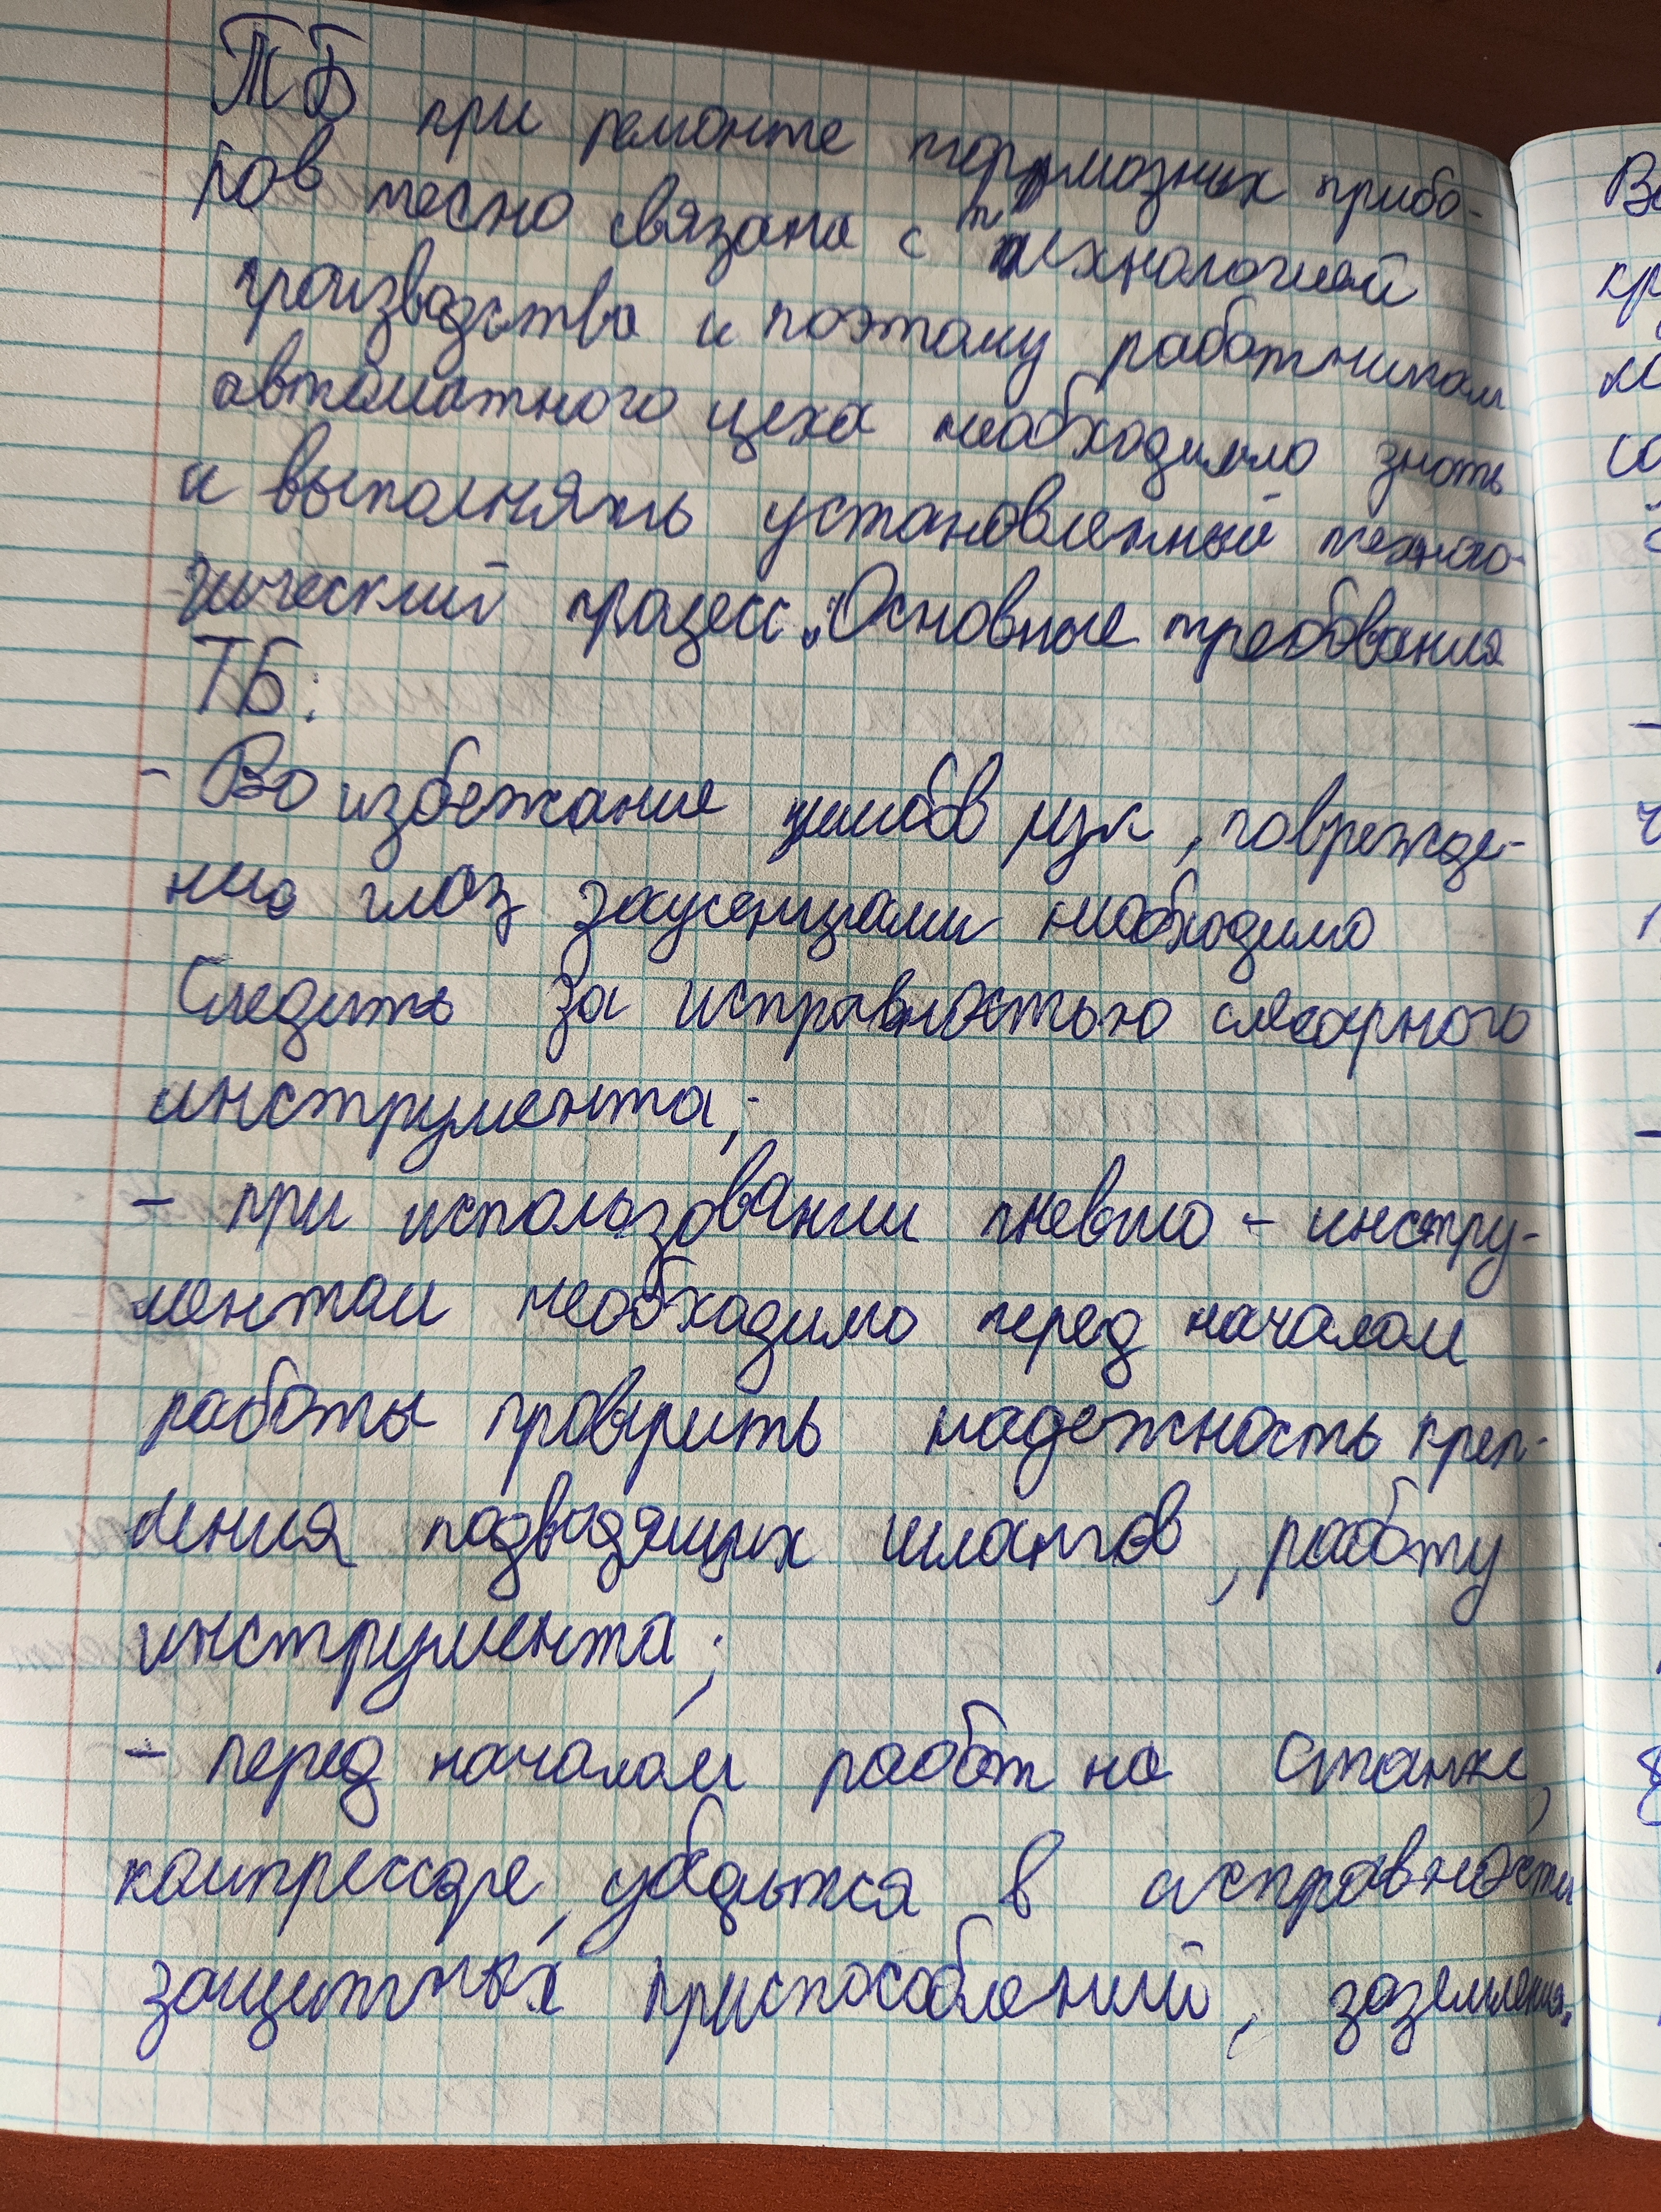 ТБ при ремонте тормозных прибо-
ров тесно связана с технологией
производства и поэтому работникам
автоматного цеха необходимо знать
и выполнять установленный техноло-
гический процесс. Основные требования
ТБ:
- Во избежание ушибов рук, поврежде-
ния глаз заусенцами необходимо
следить за исправностью слесарного
инструмента;
- при использовании пневмо - инстру-
ментам необходимо перед началом
работы проверить надежность креп-
ления подводящих шлангов, работу
инструмента;
- перед началом работ на станке,
компрессоре, убедиться в исправности
защитных приспособлений, заземления.
Во
кр
со